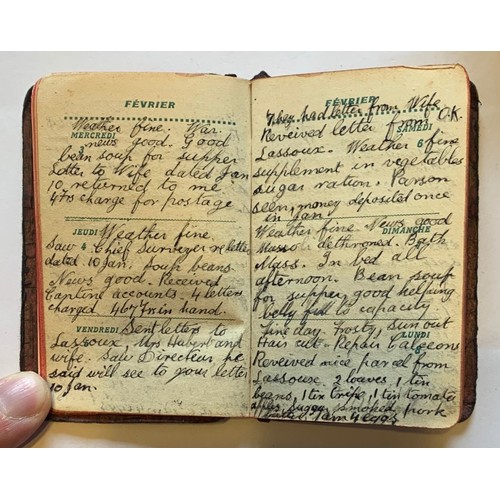 FÉVRIER
Weather fine. War
MERCREDI
3
news good. Good
bean soup for supper
Letter to Wife dated Jan
10 returned to me
4frs charge for postage
JEUDI
4
Weather fine.
Saw Chief Surveyor re letter
dated 10 Jan. Soup beans.
News good. Received
Cantine accounts. 4 letters
charged. 467 frs in hand.
VENDREDI
Sent letters to
Lassoux, Mrs Hubert and
wife. Saw Directeur he
said will see to your letter
10 Jan.
FÉVRIER
They had letter from Wife
O.K.
Received letter from
SAMEDI
6
Lassoux. Weather fine
supplement in vegetables
sugar ration. Parson
seen, money deposited once
in Jan
Weather fine. News good
DIMANCHE
dethroned. Bath
Mass. In bed all
afternoon. Bean soup
for supper good helping
belly full to capacity
Fine day. Frosty, sun out
LUNDI
8
Hair cut. Repair Caleçons
Received nice parcel from
Lassoux. 2 loaves, 1 tin
beans, 1 tin tripe, 1 tin tomato
sugar smoked pork
1 jam 4 eggs